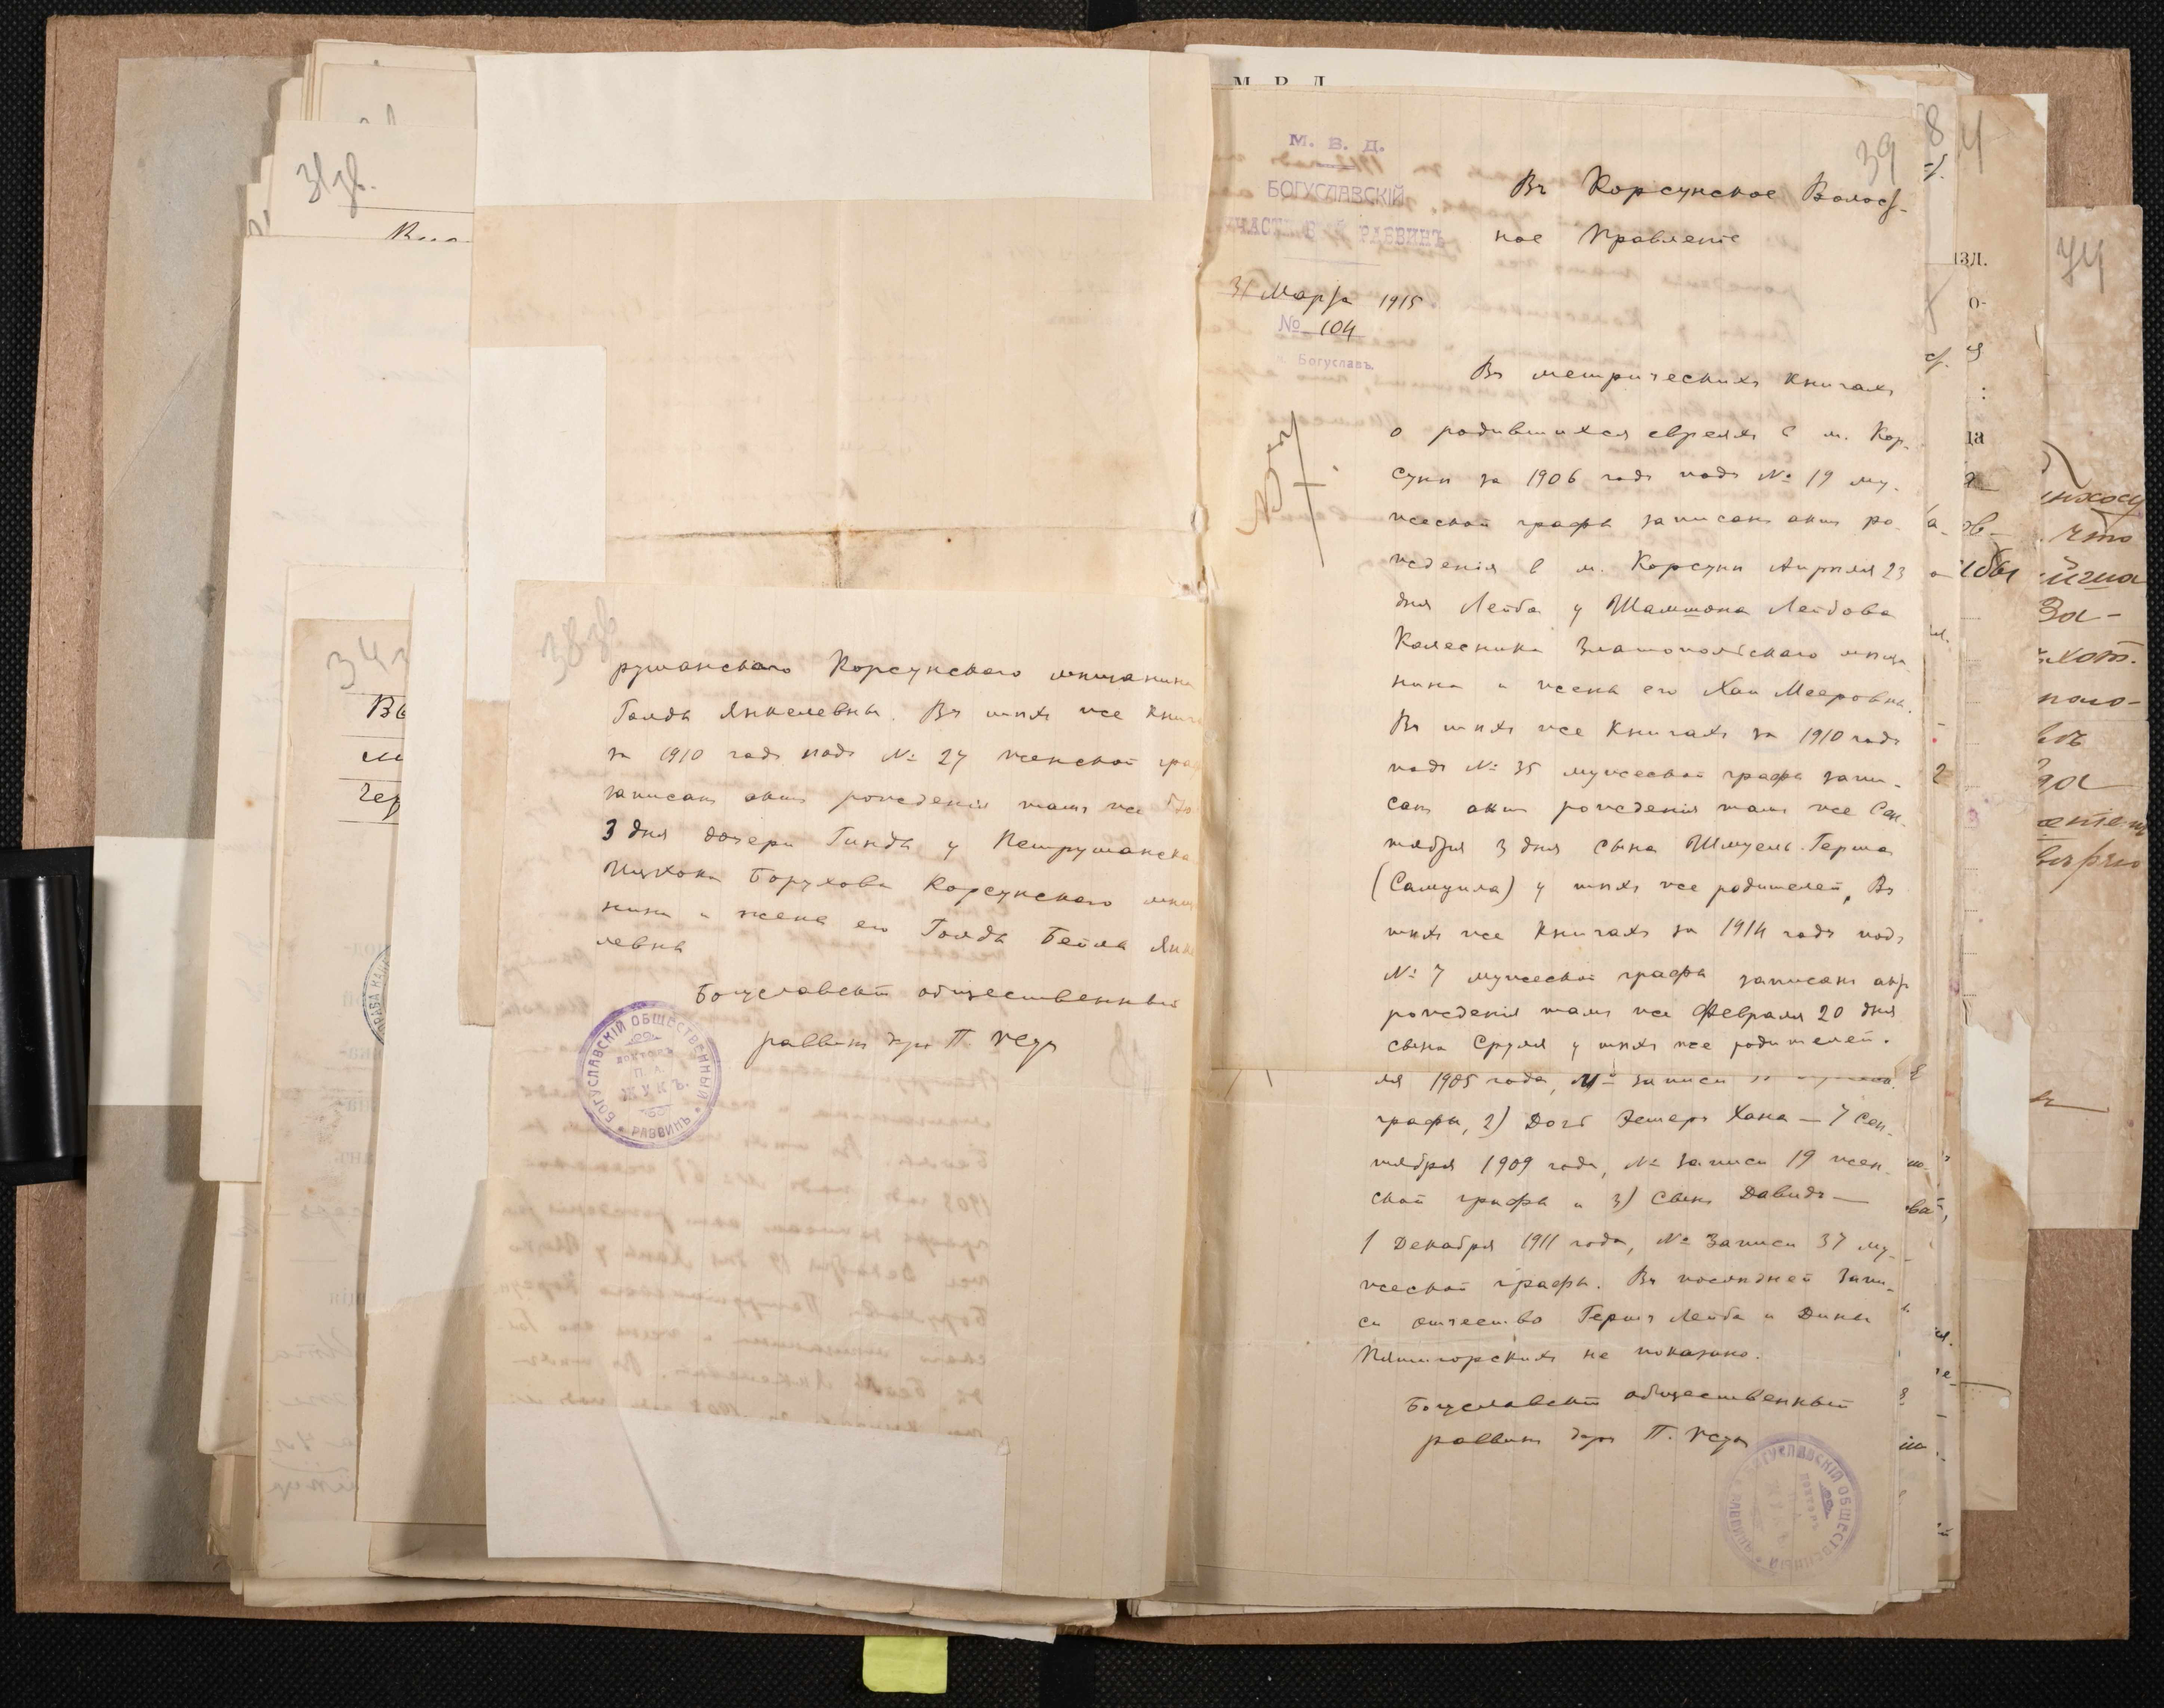 31 зв.
38 зв.
рушанскаго Корсунскаго мѣщанина
Голды Янкелевны. Въ тѣхъ же книга
за 1910 годъ подъ № 27 женской граф
записанъ актъ рожденія тамъ же
3 дня дочери Гинды у Петрушанска
Ицхока Борухова Корсунскаго мѣща
нина и жены его Голды Бейла Янке
левны
Богуславскій общественный
раввинъ д-ръ П. Жукъ
БОГУСЛАВСКІЙ ОБЩЕСТВЕННЫЙ РАВВИНЪ
ДОКТОРЪ
П. А.
ЖУКЪ.
34
Вы
ли
Чер
М. В. Д.
39
М. В. Д.
БОГУСЛАВСКІЙ
РАВВИНЪ
Въ Корсунское Волост-
ное Правленіе
31 Марта 1915
№ 104
г. Богуславъ
Въ метрическихъ книгахъ
о родившихся евреяхъ в м. Кор-
суни за 1906 годъ подъ № 19 му-
жеской графы записанъ актъ ро-
жденія в м. Корсуни Апрѣля 23
дня Лейба у Шамшона Лейбова
Колесника Златопольскаго мѣща
нина и жены его Хаи Мееровны.
Въ тѣхъ же книгахъ за 1910 годъ
подъ № 35 мужеской графы запи-
санъ актъ рожденія тамъ же Сен-
тября 3 дня сына Шмуель-Герша
(Самуила) у тѣхъ же родителей. Въ
тѣхъ же книгахъ за 1914 годъ подъ
№ 7 мужеской графы записанъ актъ
рожденія тамъ же Февраля 20 дня
сына Сруля у тѣхъ же родителей.
ля 1905 года, № записи
графы, 2) Дочь Эстеръ Хана — 7 Сен-
тября 1909 года, № записи 19 жен-
ской графы и 3) Сынъ Давидъ —
1 Декабря 1911 года, № записи 37 му-
жеской графы. Въ послѣдней запи-
си отчество Гершъ Лейба и Дины
Пятигорскихъ не показано.
Богуславскій общественный
раввинъ д-ръ П. Жукъ
БОГУСЛАВСКІЙ ОБЩЕСТВЕННЫЙ РАВВИНЪ
ДОКТОРЪ
ЖУКЪ
74
что
За-